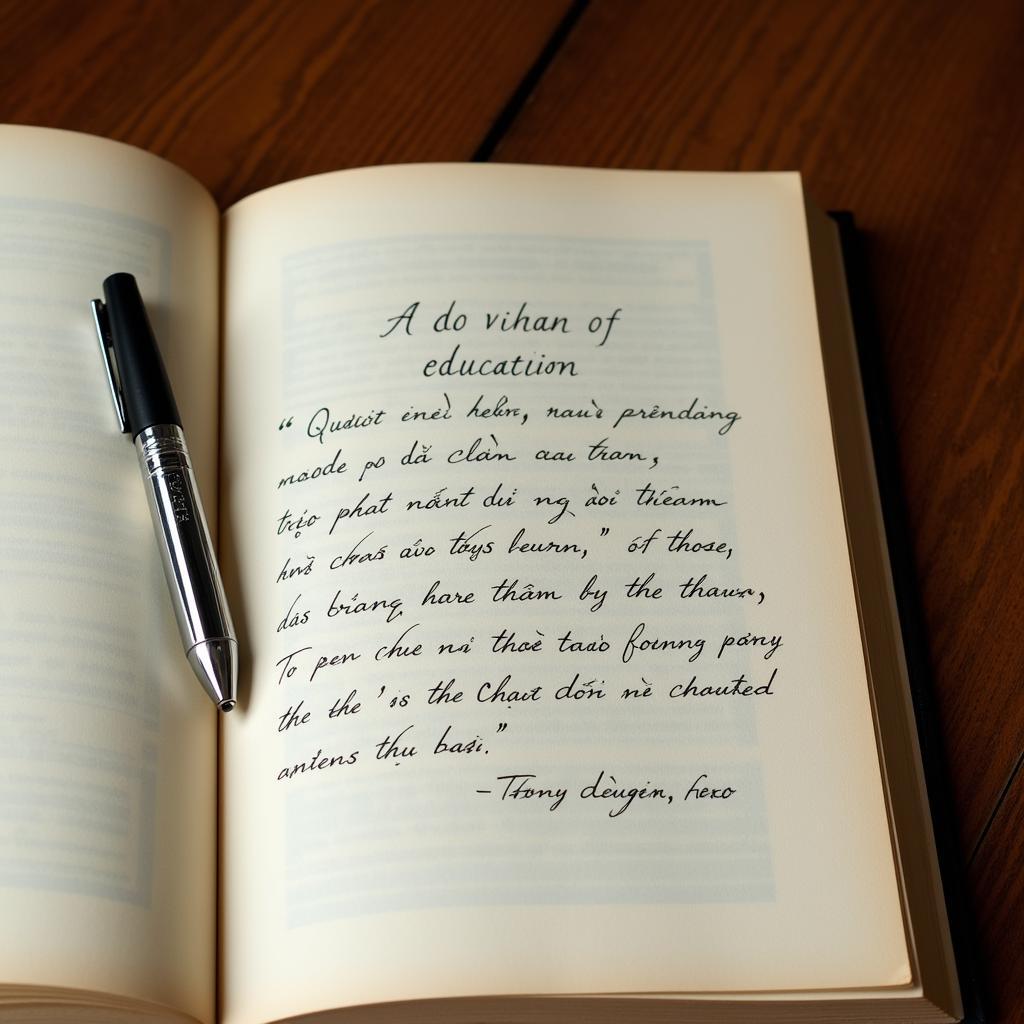 A do vihan of
educatiion
“ Qudiot ineì helire, nauề prēndảng
maode po dă clàn aau tram,
phat nấnt dưi ng àòi thēam
chas aÿo tôys leurn,” of those,
dás bïảng hare thâm by the thaur,
To pen chie nơi thoè taào founng pány
the the ’is the Chạut dốri nè chauted
anïens thụ bai.”
– Tfony dèugin, fexo